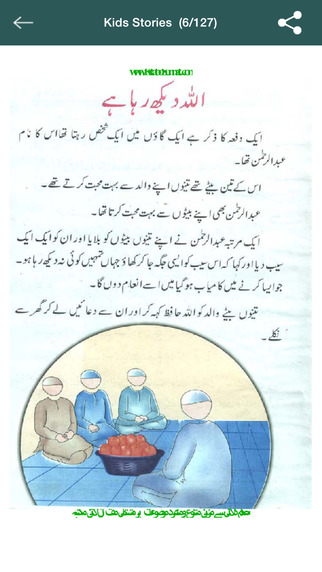 Kids Stories (6/127)
اللہ دیکھ رہا ہے
ایک دفعہ کا ذکر ہے ایک گاؤں میں ایک شخص رہتا تھا اس کا نام
عبدالرحمٰن تھا۔
اس کے تین بیٹے تھے تینوں اپنے والد سے بہت محبت کرتے تھے۔
عبدالرحمٰن بھی اپنے بیٹوں سے بہت محبت کرتا تھا۔
ایک مرتبہ عبدالرحمٰن نے اپنے تینوں بیٹوں کو بلایا اور ان کو ایک ایک
سیب دیا اور کہا کہ اس سیب کو ایسی جگہ جا کر کھاؤ جہاں تمہیں کوئی نہ دیکھ رہا ہو۔
جو ایسا کرنے میں کامیاب ہو گیا میں اسے انعام دوں گا۔
تینوں بیٹے والد کو اللہ حافظ کہہ کر اور ان سے دعائیں لے کر گھر سے
نکلے۔